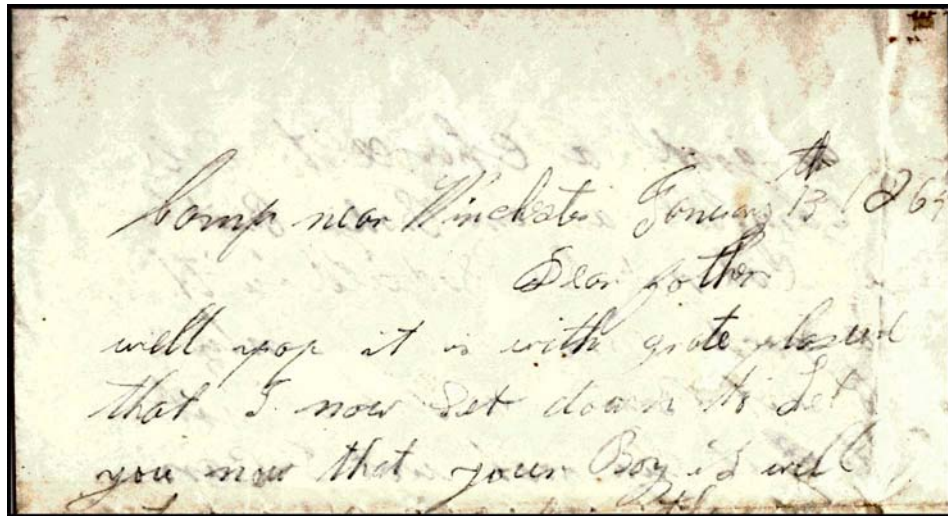 Camp near Winchester January 13th 186
Dear father
well pop it is with grate plasure
that I now set down to Let
you now that your Boy is well